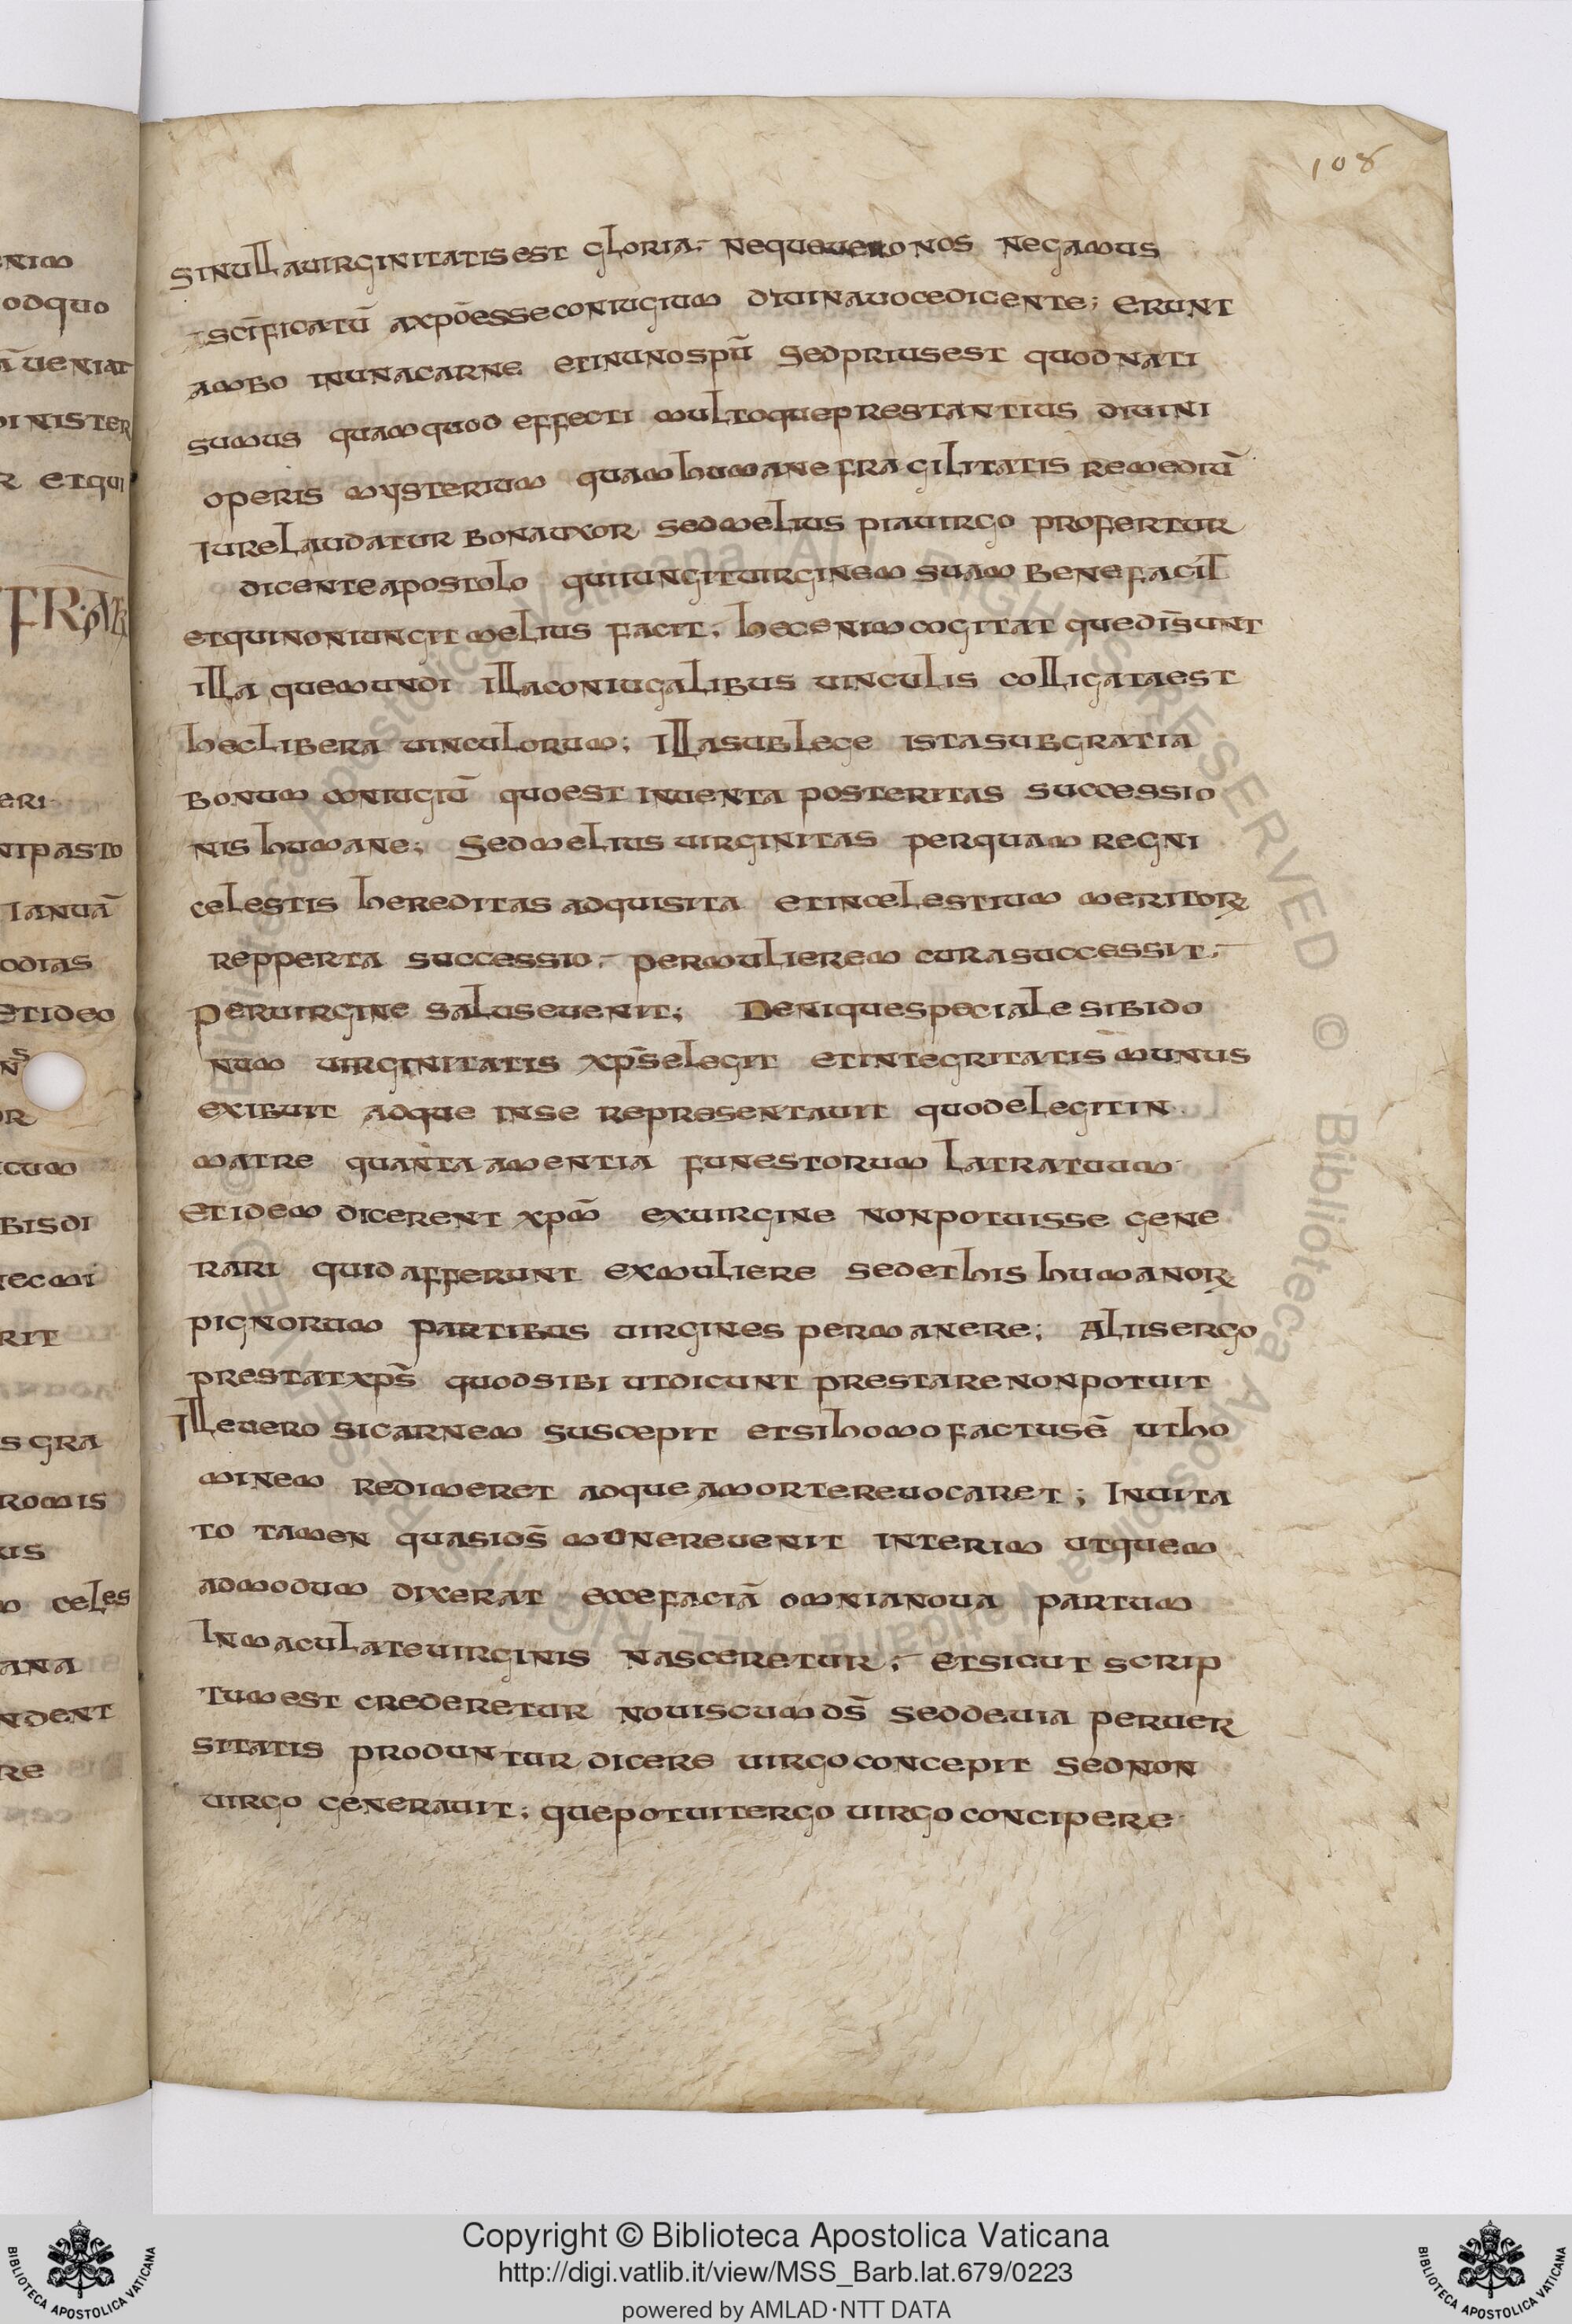 108
sinulla uirginitatis est gloria. neque uero nos negamus
scīficatū axpō esse coniugium diuina uoce dicente; erunt
ambo in una carne et in uno spū sed prius est quod nati
sumus quam quod effecti multoque prestantius diuini
operis mysterium quam humane fragilitatis remediū
iure laudatur bona uxor sed melius pia uirgo profertur
dicente apostolo qui iungit uirginem suam bene facit
et qui non iungit melius facit. hec enim cogitat que dīsunt
illa que mundi illa coniugalibus uinculis colligata est
hec libera uinculorum; illa sub lege ista sub gratia
bonum coniugiū quo est inuenta posteritas successio
nis humane; sed melius uirginitas per quam regni
celestis hereditas adquisita et in celestium meritoꝝ
repperta successio. per mulierem cura successit.
per uirgine salus euenit; Denique speciale sibi do
num uirginitatis xps̄ elegit et integritatis munus
exibuit adque in se representauit quod elegit in
matre quanta amentia funestorum latratuum
et idem dicerent xpm̄ ex uirgine non potuisse gene
rari quid afferunt ex muliere sed et his humanoꝝ
pignorum partibus uirgines permanere; Aliis ergo
prestat xps̄ quod sibi ut dicunt prestare non potuit
Ille uero si carnem suscepit etsi homo factus ē ut ho
minem redimeret adque a morte reuocaret; Inuita
to tamen quasi ds̄ munere uenit interim ut quem
admodum dixerat ecce faciā omnia noua partum
Inmaculate uirginis nasceretur; et sicut scrip
tum est crederetur nouiscum ds̄ sed de uia peruer
sitatis produntur dicere uirgo concepit sed non
uirgo generauit; que potuit ergo uirgo concipere
enim
odquo
ā ueniat
inister
r et qui
eri
nipasto
ianuā
odias
et ideo
or
icum
bis di
rit
s gra
romis
us
m celes
ana
ndent
re
© Biblioteca Apostolica Vaticana ALL RIGHTS RESERVED © Biblioteca Apostolica Vaticana ALL RIGHTS RESERVED
Copyright © Biblioteca Apostolica Vaticana
http://digi.vatlib.it/view/MSS_Barb.lat.679/0223
powered by AMLAD·NTT DATA
BIBLIOTECA APOSTOLICA VATICANA
BIBLIOTECA APOSTOLICA VATICANA